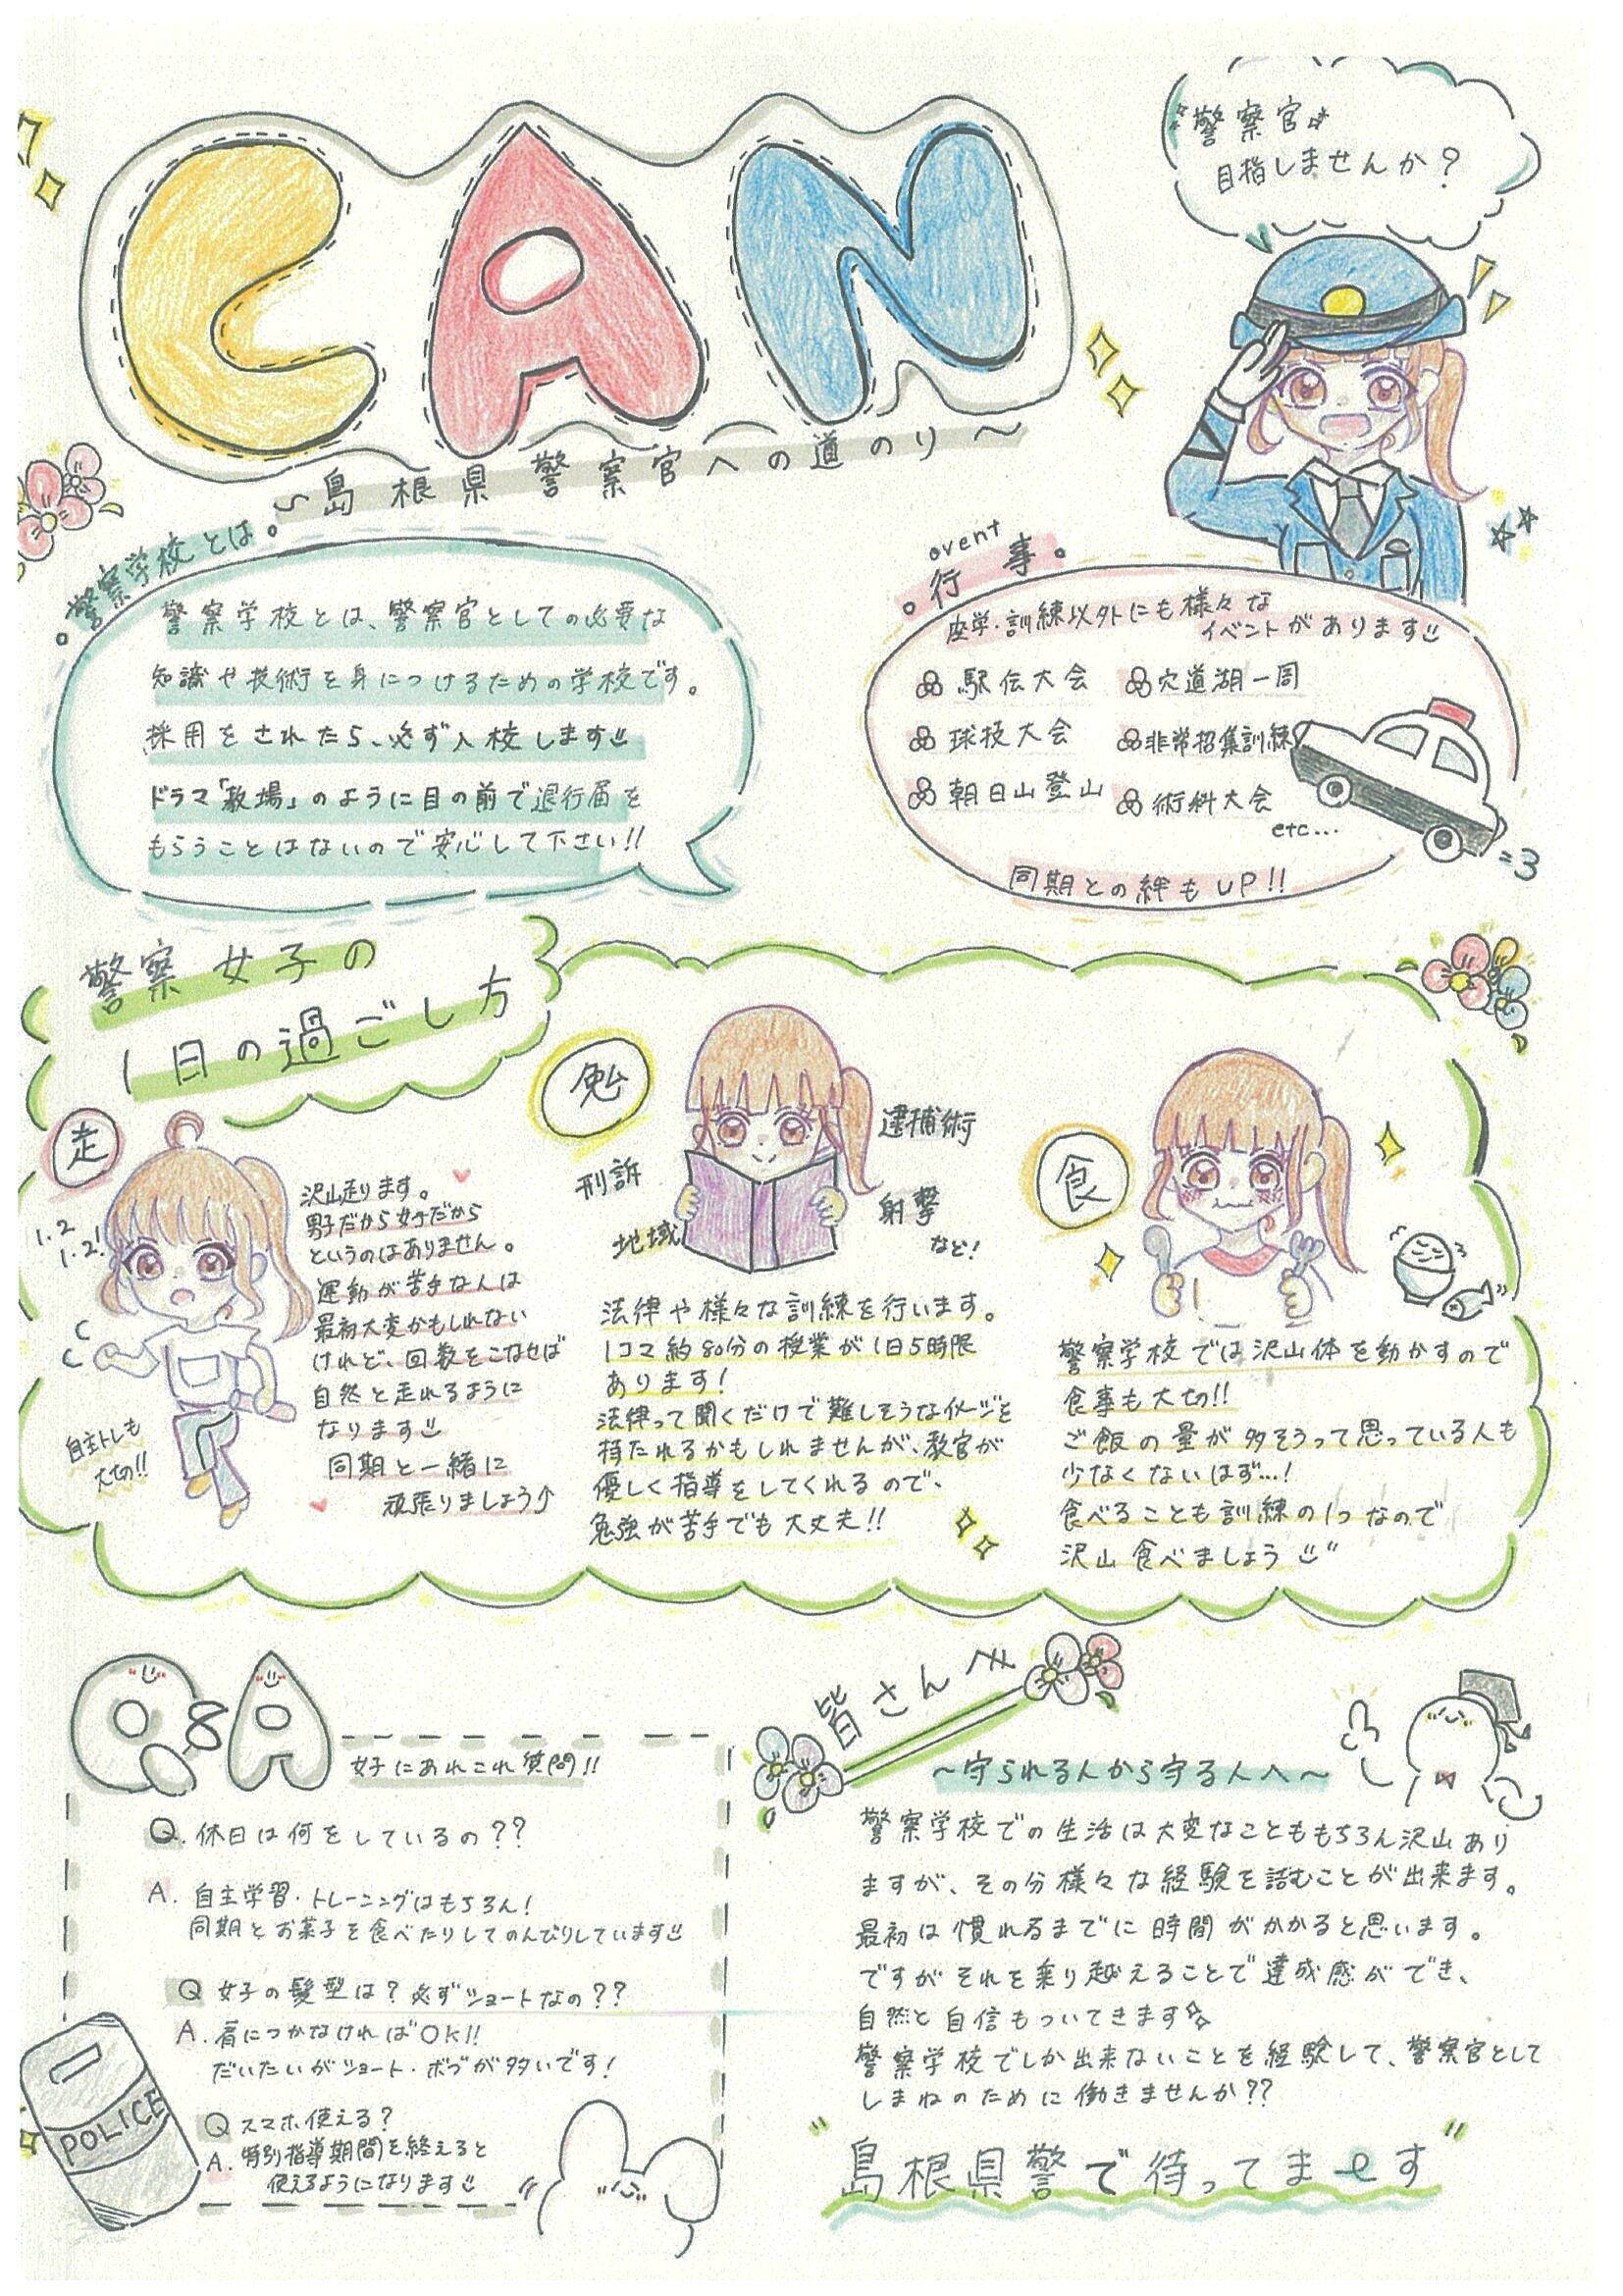 CAN
〜島根県警察官への道のり〜
警察官
目指しませんか?
警察学校とは
警察学校とは、警察官としての必要な
知識や技術を身につけるための学校です。
採用をされたら、必ず入校します
ドラマ「教場」のように目の前で退行届を
もらうことはないので安心して下さい!!
event
行事
座学・訓練以外にも様々な
イベントがあります
駅伝大会
宍道湖一周
球技大会
非常招集訓練
朝日山登山
術科大会
etc...
同期との絆もUP!!
警察女子の
1日の過ごし方
走
1.2
1.2!
自主トレも
大切!!
沢山走ります。
男子だから女子だから
というのはありません。
運動が苦手な人は
最初大変かもしれない
けれど、回数をこなせば
自然と走れるように
なります
同期と一緒に
頑張りましょう↑
勉
刑訴
地域
逮捕術
射撃
など!
法律や様々な訓練を行います。
1コマ約80分の授業が1日5時限
あります!
法律って聞くだけで難しそうなイメージを
持たれるかもしれませんが、教官が
優しく指導をしてくれるので、
勉強が苦手でも大丈夫!!
食
警察学校では沢山体を動かすので
食事も大切!!
ご飯の量が多そうって思っている人も
少なくないはず…!
食べることも訓練の1つなので
沢山食べましょう
Q&A
女子にあれこれ質問!!
Q. 休日は何をしているの??
A. 自主学習・トレーニングはもちろん!
同期とお菓子を食べたりしてのんびりしています
Q 女子の髪型は?必ずショートなの??
A. 肩につかなければOK!!
だいたいがショート・ボブが多いです!
Q スマホ使える?
A. 特別指導期間を終えると
使えるようになります
POLICE
皆さんへ
〜守られる人から守る人へ〜
警察学校での生活は大変なことももちろん沢山あり
ますが、その分様々な経験を詰むことが出来ます。
最初は慣れるまでに時間がかかると思います。
ですがそれを乗り越えることで達成感ができ、
自然と自信もついてきます
警察学校でしか出来ないことを経験して、警察官として
しまねのために働きませんか??
島根県警で待ってまーす